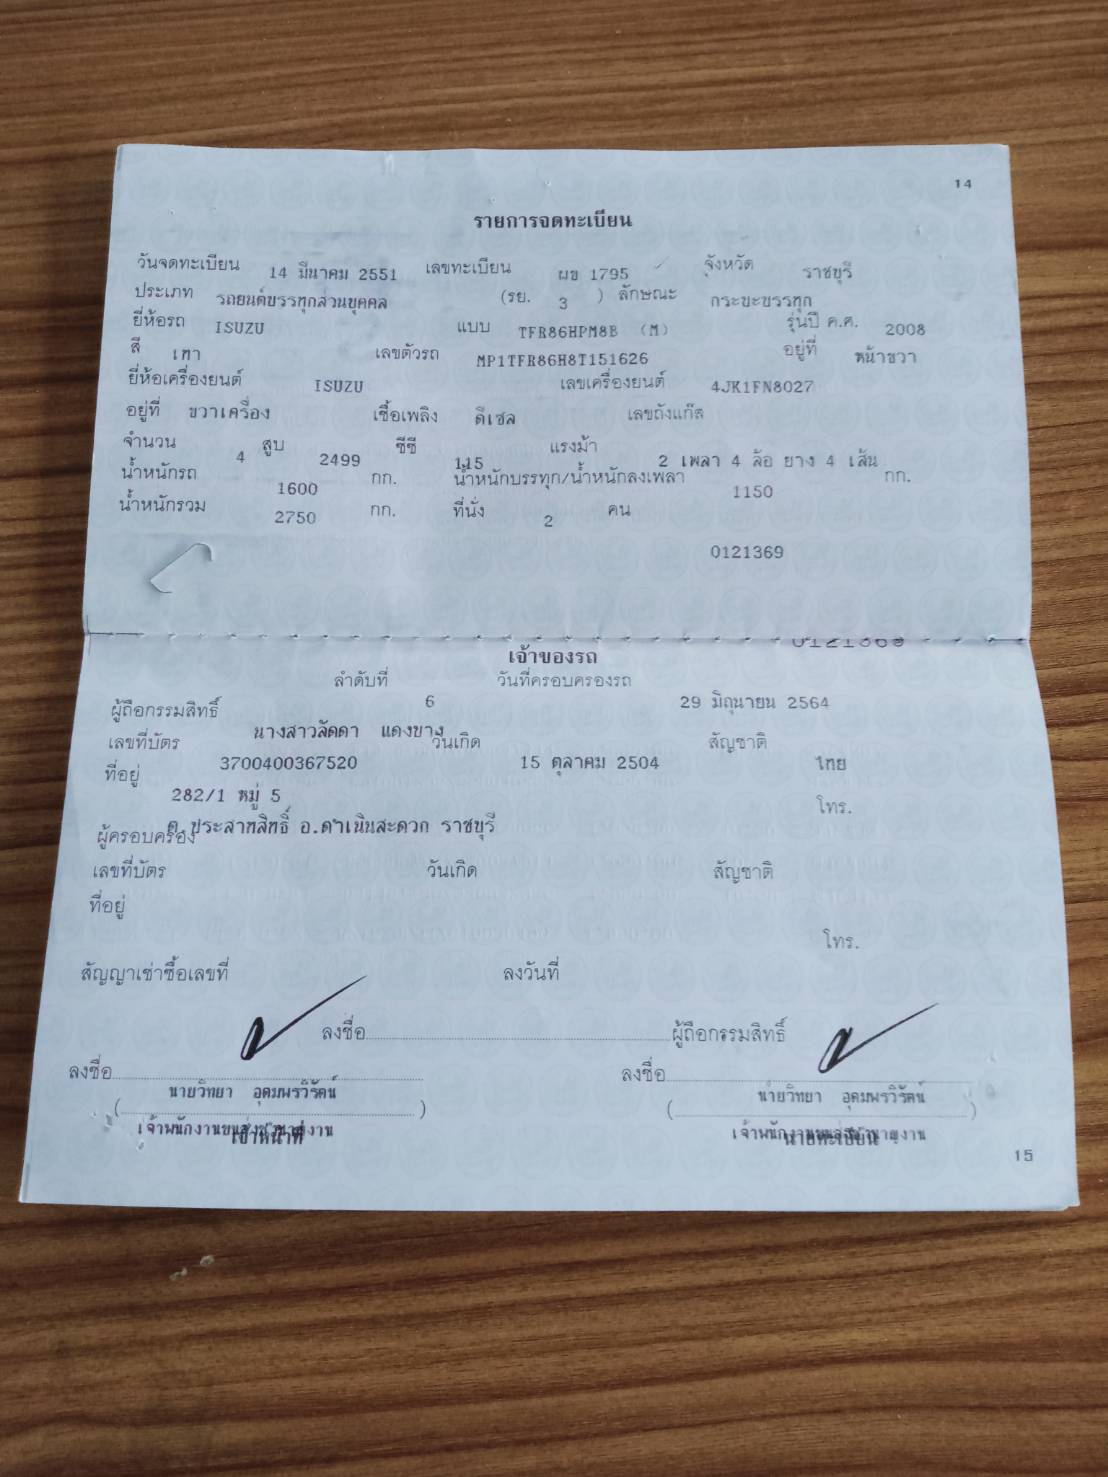 14
รายการจดทะเบียน
วันจดทะเบียน 14 มีนาคม 2551 เลขทะเบียน ผข 1795 จังหวัด ราชบุรี
ประเภท รถยนต์บรรทุกส่วนบุคคล (รย. 3 ) ลักษณะ กระบะบรรทุก
ยี่ห้อรถ ISUZU แบบ TFR86HPM8B (M) รุ่นปี ค.ศ. 2008
สี เทา เลขตัวรถ MP1TFR86H8T151626 อยู่ที่ หน้าขวา
ยี่ห้อเครื่องยนต์ ISUZU เลขเครื่องยนต์ 4JK1FN8027
อยู่ที่ ขวาเครื่อง เชื้อเพลิง ดีเซล เลขถังแก๊ส
จำนวน 4 สูบ 2499 ซีซี 115 แรงม้า 2 เพลา 4 ล้อ ยาง 4 เส้น
น้ำหนักรถ 1600 กก. น้ำหนักบรรทุก/น้ำหนักลงเพลา 1150 กก.
น้ำหนักรวม 2750 กก. ที่นั่ง 2 คน
0121369
0121369
เจ้าของรถ
ลำดับที่ 6 วันที่ครอบครองรถ 29 มิถุนายน 2564
ผู้ถือกรรมสิทธิ์ นางสาวลัดดา แดงขาง
เลขที่บัตร 3700400367520 วันเกิด 15 ตุลาคม 2504 สัญชาติ ไทย
ที่อยู่ 282/1 หมู่ 5
ต.ประสาทสิทธิ์ อ.ดำเนินสะดวก ราชบุรี โทร.
ผู้ครอบครอง
เลขที่บัตร วันเกิด สัญชาติ
ที่อยู่
โทร.
สัญญาเช่าซื้อเลขที่ ลงวันที่
ลงชื่อ ผู้ถือกรรมสิทธิ์
ลงชื่อ ลงชื่อ
( นายวิทยา อุดมพรวิรัตน์ ) ( นายวิทยา อุดมพรวิรัตน์ )
เจ้าพนักงานขนส่งชำนาญงาน เจ้าพนักงานขนส่งชำนาญงาน
เจ้าหน้าที่ นายทะเบียน
15